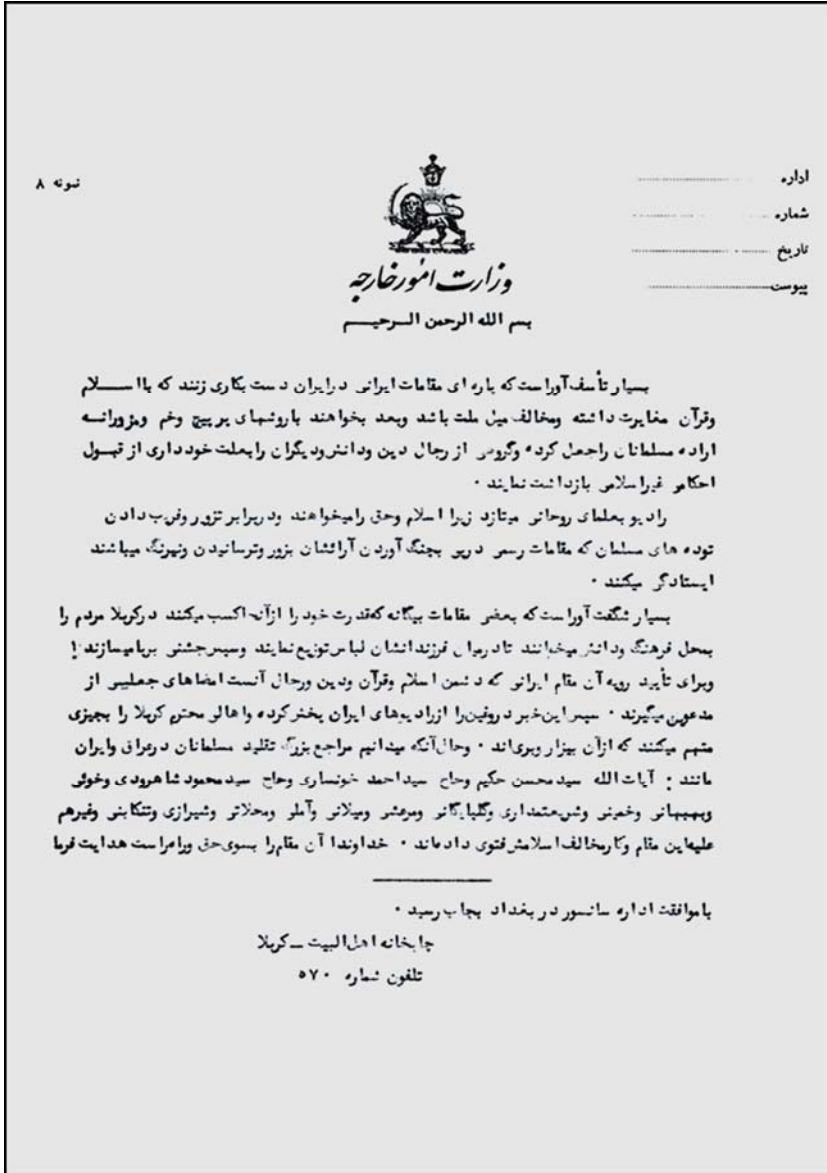 اداره
شماره
تاریخ
پیوست
نمونه ۸
وزارت امور خارجه
بسم الله الرحمن الرحیم
بسیار تأسف‌آور است که پاره ای مقامات ایرانی در ایران دست بکاری زنند که بااسلام
وقرآن مغایرت داشته ومخالف میل ملت باشد وبعد بخواهند باروشهای پر پیچ وخم ومزورانه
اراده مسلمانان راجعل کرده وگروهی از رجال دین ودانش ودیگران رابعلت خودداری از قبول
احکام غیراسلامی بازداشت نمایند ۰
رادیو بعلمای روحانی میتازد زیرا اسلام وحق رامیخواهند ودربرابر تزویر وفریب دادن
توده های مسلمان که مقامات رسمی درپی بچنگ آوردن آرائشان بزور وترسانیدن ونیرنگ میباشند
ایستادگی میکنند ۰
بسیار شگفت آوراست که بعضی مقامات بیگانه که‌قدرت خود را ازآنها کسب میکنند درکربلا مردم را
بمحل فرهنگ ودانش میخوانند تادرمیان فرزندانشان لباس توزیع نمایند وسپس جشنی برپامیسازند !
وبرای تأیید رویه آن مقام ایرانی که دشمن اسلام وقرآن ودین ورجال آنست امضاهای جعلیی از
مدعوین میگیرند ۰ سپس این خبر دروغین را ازرادیوهای ایران پخش کرده واهالی محترم کربلا را بچیزی
متهم میکنند که ازآن بیزار وبری‌اند ۰ وحال آنکه میدانیم مراجع بزرگ تقلید مسلمانان درعراق وایران
مانند : آیات الله سیدمحسن حکیم وحاج سیداحمد خونساری وحاج سیدمحمود شاهرودی وخوئی
وبهبهانی وخمینی وشریعتمداری وگلپایگانی ومرعشی ومیلانی وآملی ومحلاتی وشیرازی وتنکابنی وغیرهم
علیه‌این مقام وکارمخالف اسلامش فتوی داده‌اند ۰ خداوندا آن مقام را بسوی حق وراه راست هدایت فرما
باموافقت اداره سانسور در بغداد بچاپ رسید ۰
چاپخانه اهل البیت ــ کربلا
تلفون شماره ۵۷۰